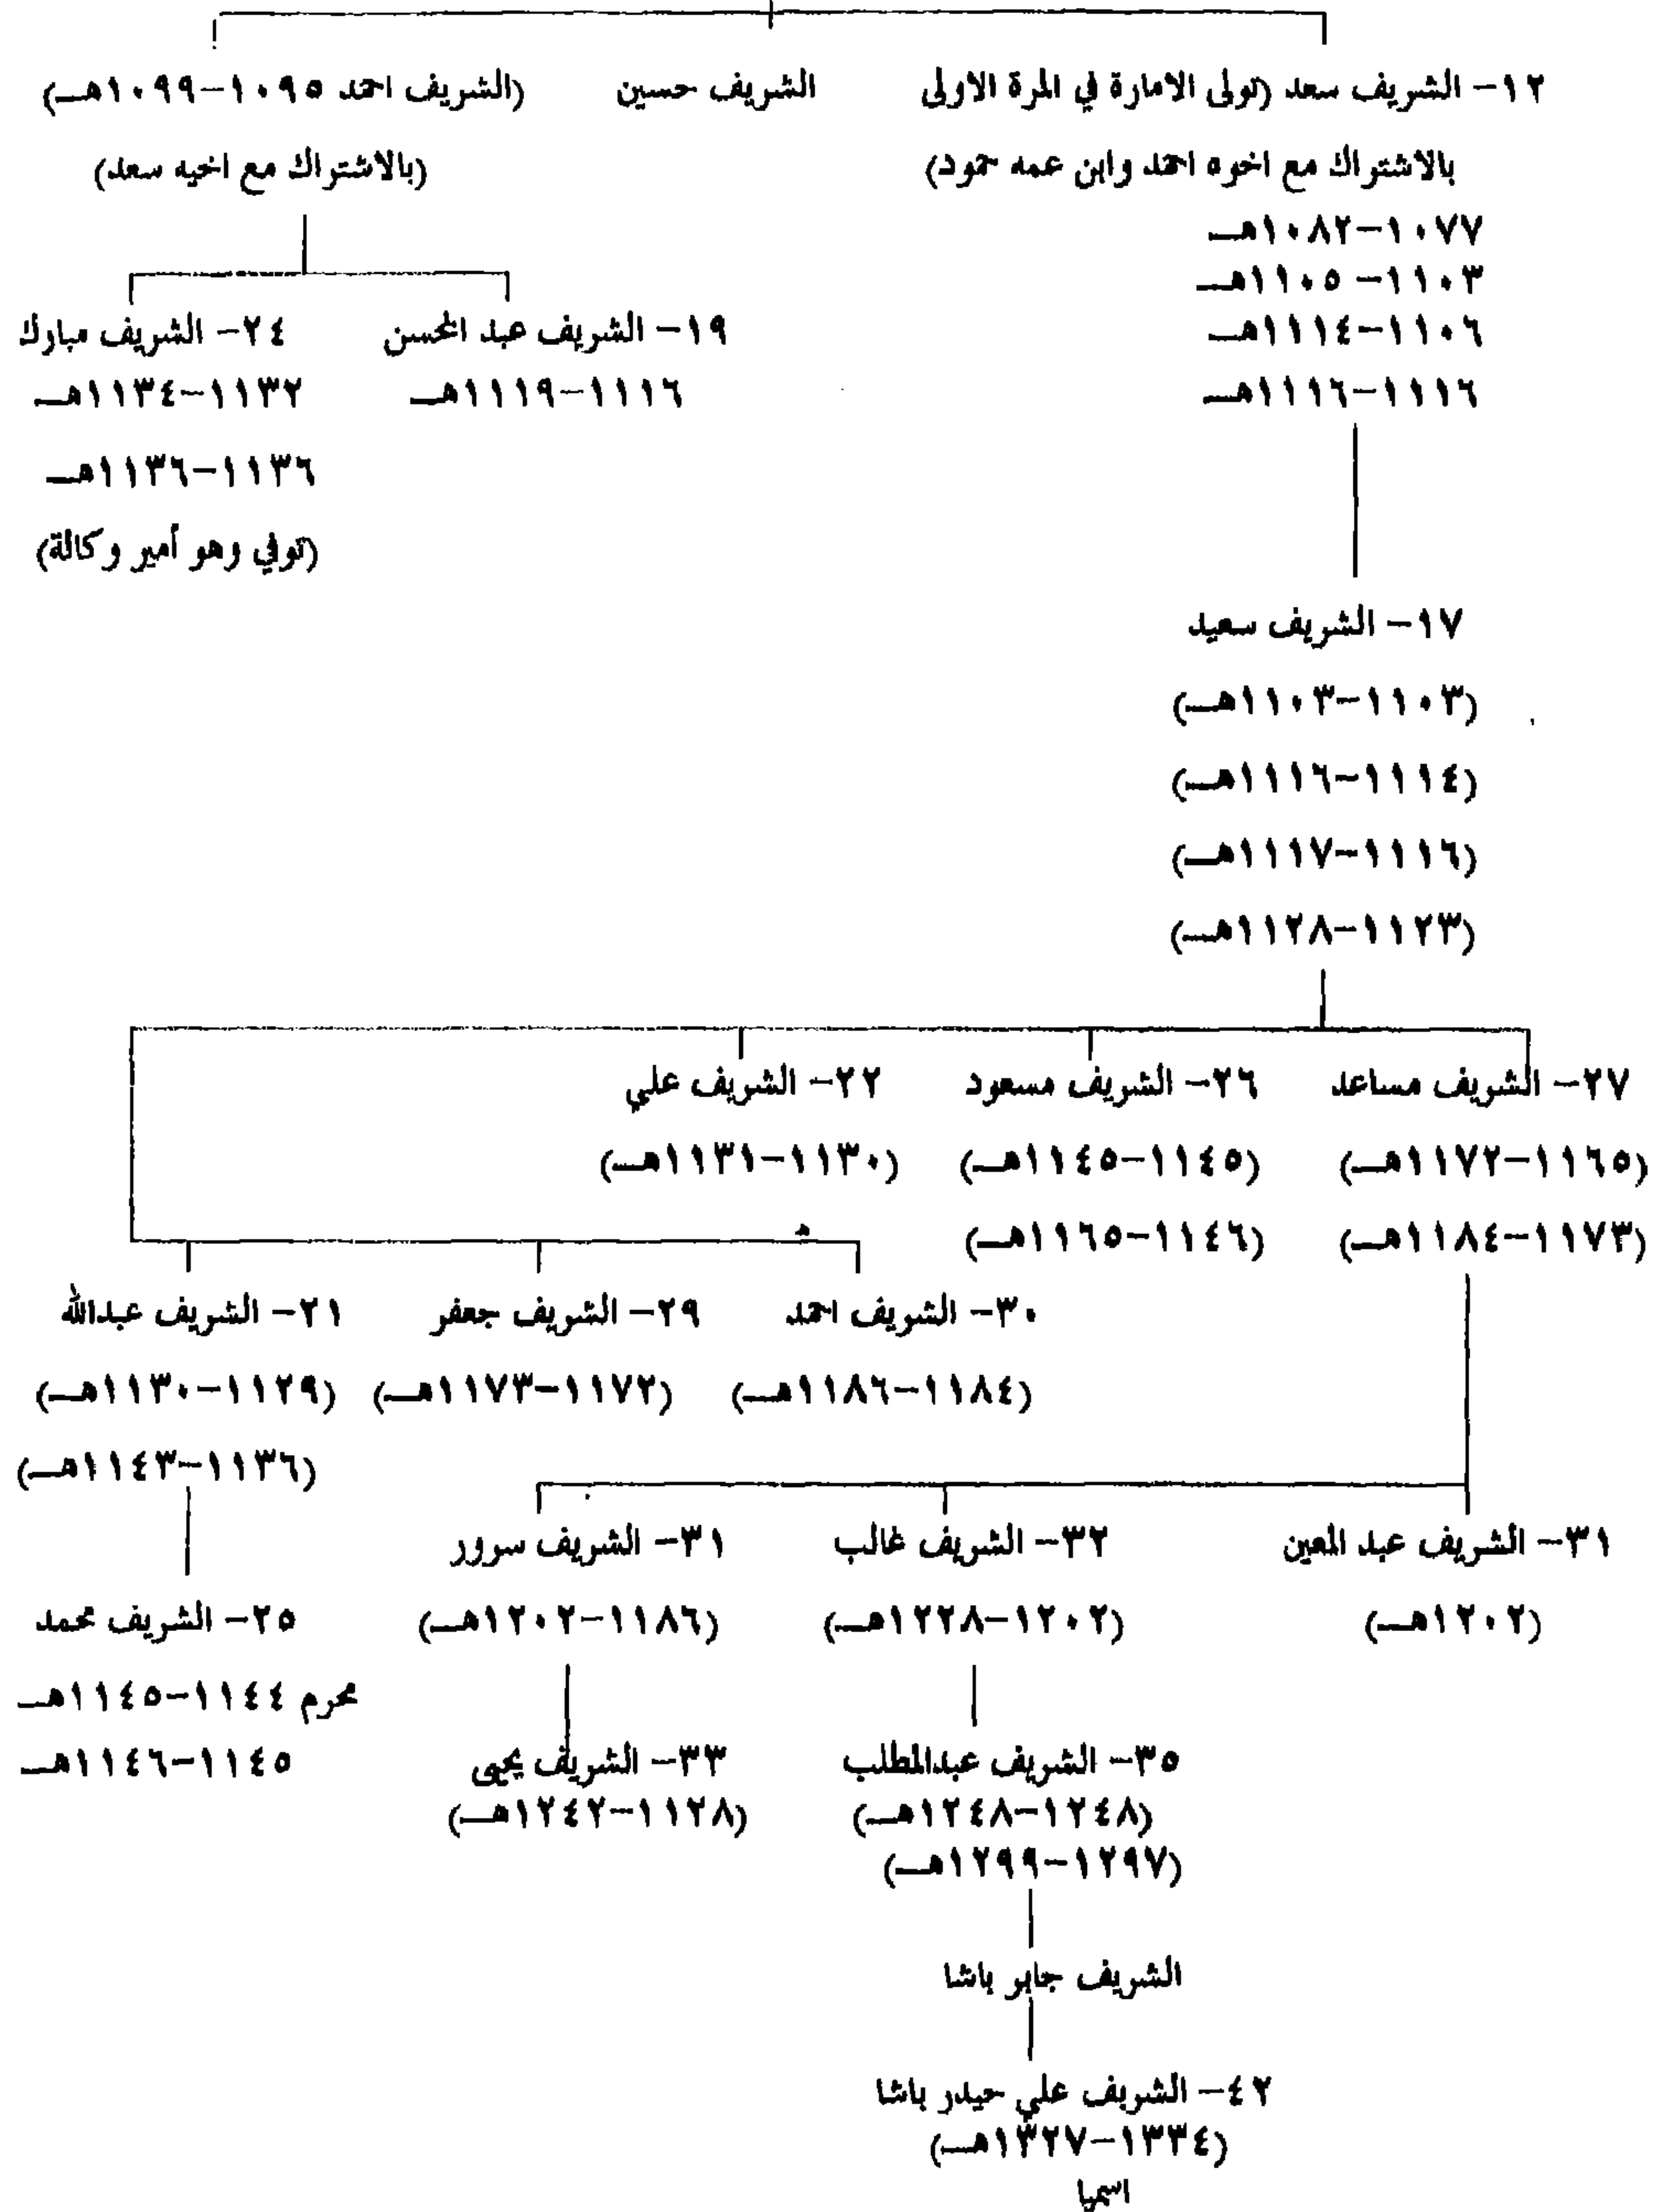 ١٢- الشريف سعد (تولى الامارة في المرة الاولى
بالاشتراك مع اخوه احمد وابن عمه حمود)
١٠٧٧-١٠٨٢هـ
١١٠٣- ١١٠٥هـ
١١٠٦-١١١٤هـ
١١١٦-١١١٦هـ
الشريف حسين
(الشريف احمد ١٠٩٥-١٠٩٩هـ)
(بالاشتراك مع اخيه سعد)
١٩- الشريف عبد المحسن
١١١٦-١١١٩هـ
٢٤- الشريف مبارك
١١٣٢-١١٣٤هـ
١١٣٦-١١٣٦هـ
(توفي وهو أمير وكالة)
١٧- الشريف سعيد
(١١٠٣-١١٠٣هـ)
(١١١٤-١١١٦هـ)
(١١١٦-١١١٧هـ)
(١١٢٣-١١٢٨هـ)
٢٧- الشريف مساعد
(١١٦٥-١١٧٢هـ)
(١١٧٣-١١٨٤هـ)
٢٦- الشريف مسعود
(١١٤٥-١١٤٥هـ)
(١١٤٦-١١٦٥هـ)
٢٢- الشريف علي
(١١٣٠-١١٣١هـ)
٣٠- الشريف احمد
(١١٨٤-١١٨٦هـ)
٢٩- الشريف جعفر
(١١٧٢-١١٧٣هـ)
٢١- الشريف عبدالله
(١١٢٩-١١٣٠هـ)
(١١٣٦-١١٤٣هـ)
٣١- الشريف عبد المعين
(١٢٠٢هـ)
٣٢- الشريف غالب
(١٢٠٢-١٢٢٨هـ)
٣١- الشريف سرور
(١١٨٦-١٢٠٢هـ)
٢٥- الشريف محمد
محرم ١١٤٤-١١٤٥هـ
١١٤٥-١١٤٦هـ
٣٥- الشريف عبدالمطلب
(١٢٤٨-١٢٤٨هـ)
(١٢٩٧-١٢٩٩هـ)
٣٣- الشريف يحيى
(١١٢٨-١٢٤٢هـ)
الشريف جابر باشا
٤٢- الشريف علي حيدر باشا
(١٣٣٤-١٣٢٧هـ)
اسميا